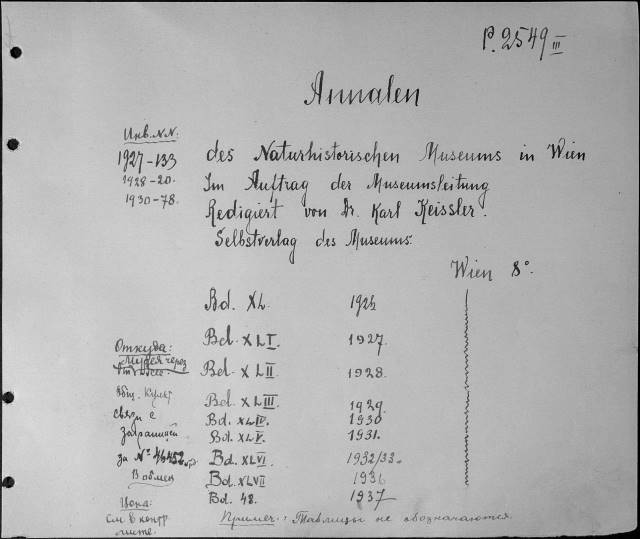 P. 2549 III
Annalen
Инв. N.N.
1927-133
1928-20.
1930-78.
des Naturhistorischen Museums in Wien
Im Auftrag der Museumsleitung
Redigiert von Dr. Karl Keissler.
Selbstverlag des Museums.
Wien 8°.
Bd. XL. 1926
Bd. XLI. 1927.
Bd. XLII. 1928.
Bd. XLIII. 1929.
Bd. XLIV. 1930
Bd. XLV. 1931.
Bd. XLVI. 1932/33.
Bd. XLVII 1936
Bd. 48. 1937
Откуда:
Музея через
Общ. Культ
связи с
Заграницей
за № 46452
В обмен
Цена:
См. в контр
листе.
Примеч.: Таблицы не обозначаются.